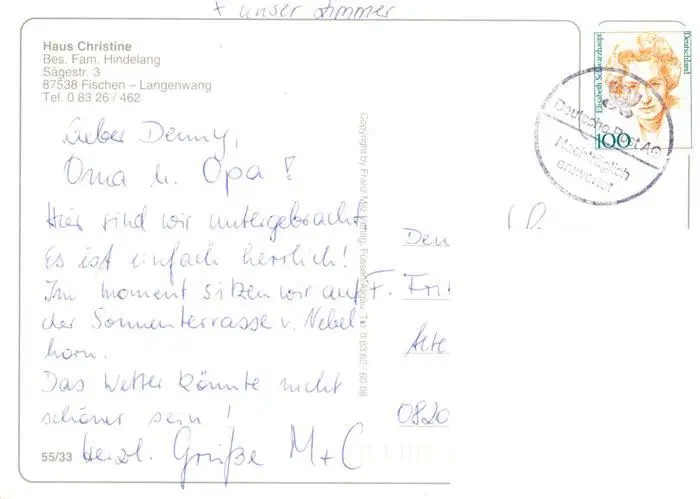 + unser Zimmer
Haus Christine
Bes. Fam. Hindelang
Sägestr. 3
87538 Fischen – Langenwang
Tel. 0 83 26 / 462
Lieber Denny,
Oma u. Opa!
Hier sind wir untergebracht.
Es ist einfach herrlich!
Im Moment sitzen wir auf
der Sonnenterrasse v. Nebel-
horn.
Das Wetter könnte nicht
schöner sein!
herzl. Grüße M+C
55/33
Copyright by Franz Verlag, Füssen Tel. 0 83 62 / 60 08
Elisabeth Schwarzhaupt
Deutschland
100
Deutsche Post AG
Nachträglich
entwertet
Den
F. Fri
Alte
0820